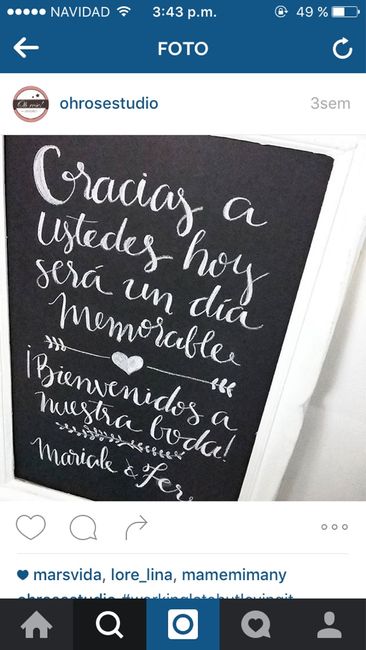 NAVIDAD 3:43 p.m. 49 %
FOTO
ohrosestudio 3sem
Gracias a
ustedes hoy
será un día
memorable
¡Bienvenidos a
nuestra boda!
Mariale & Fer
marsvida, lore_lina, mamemimany